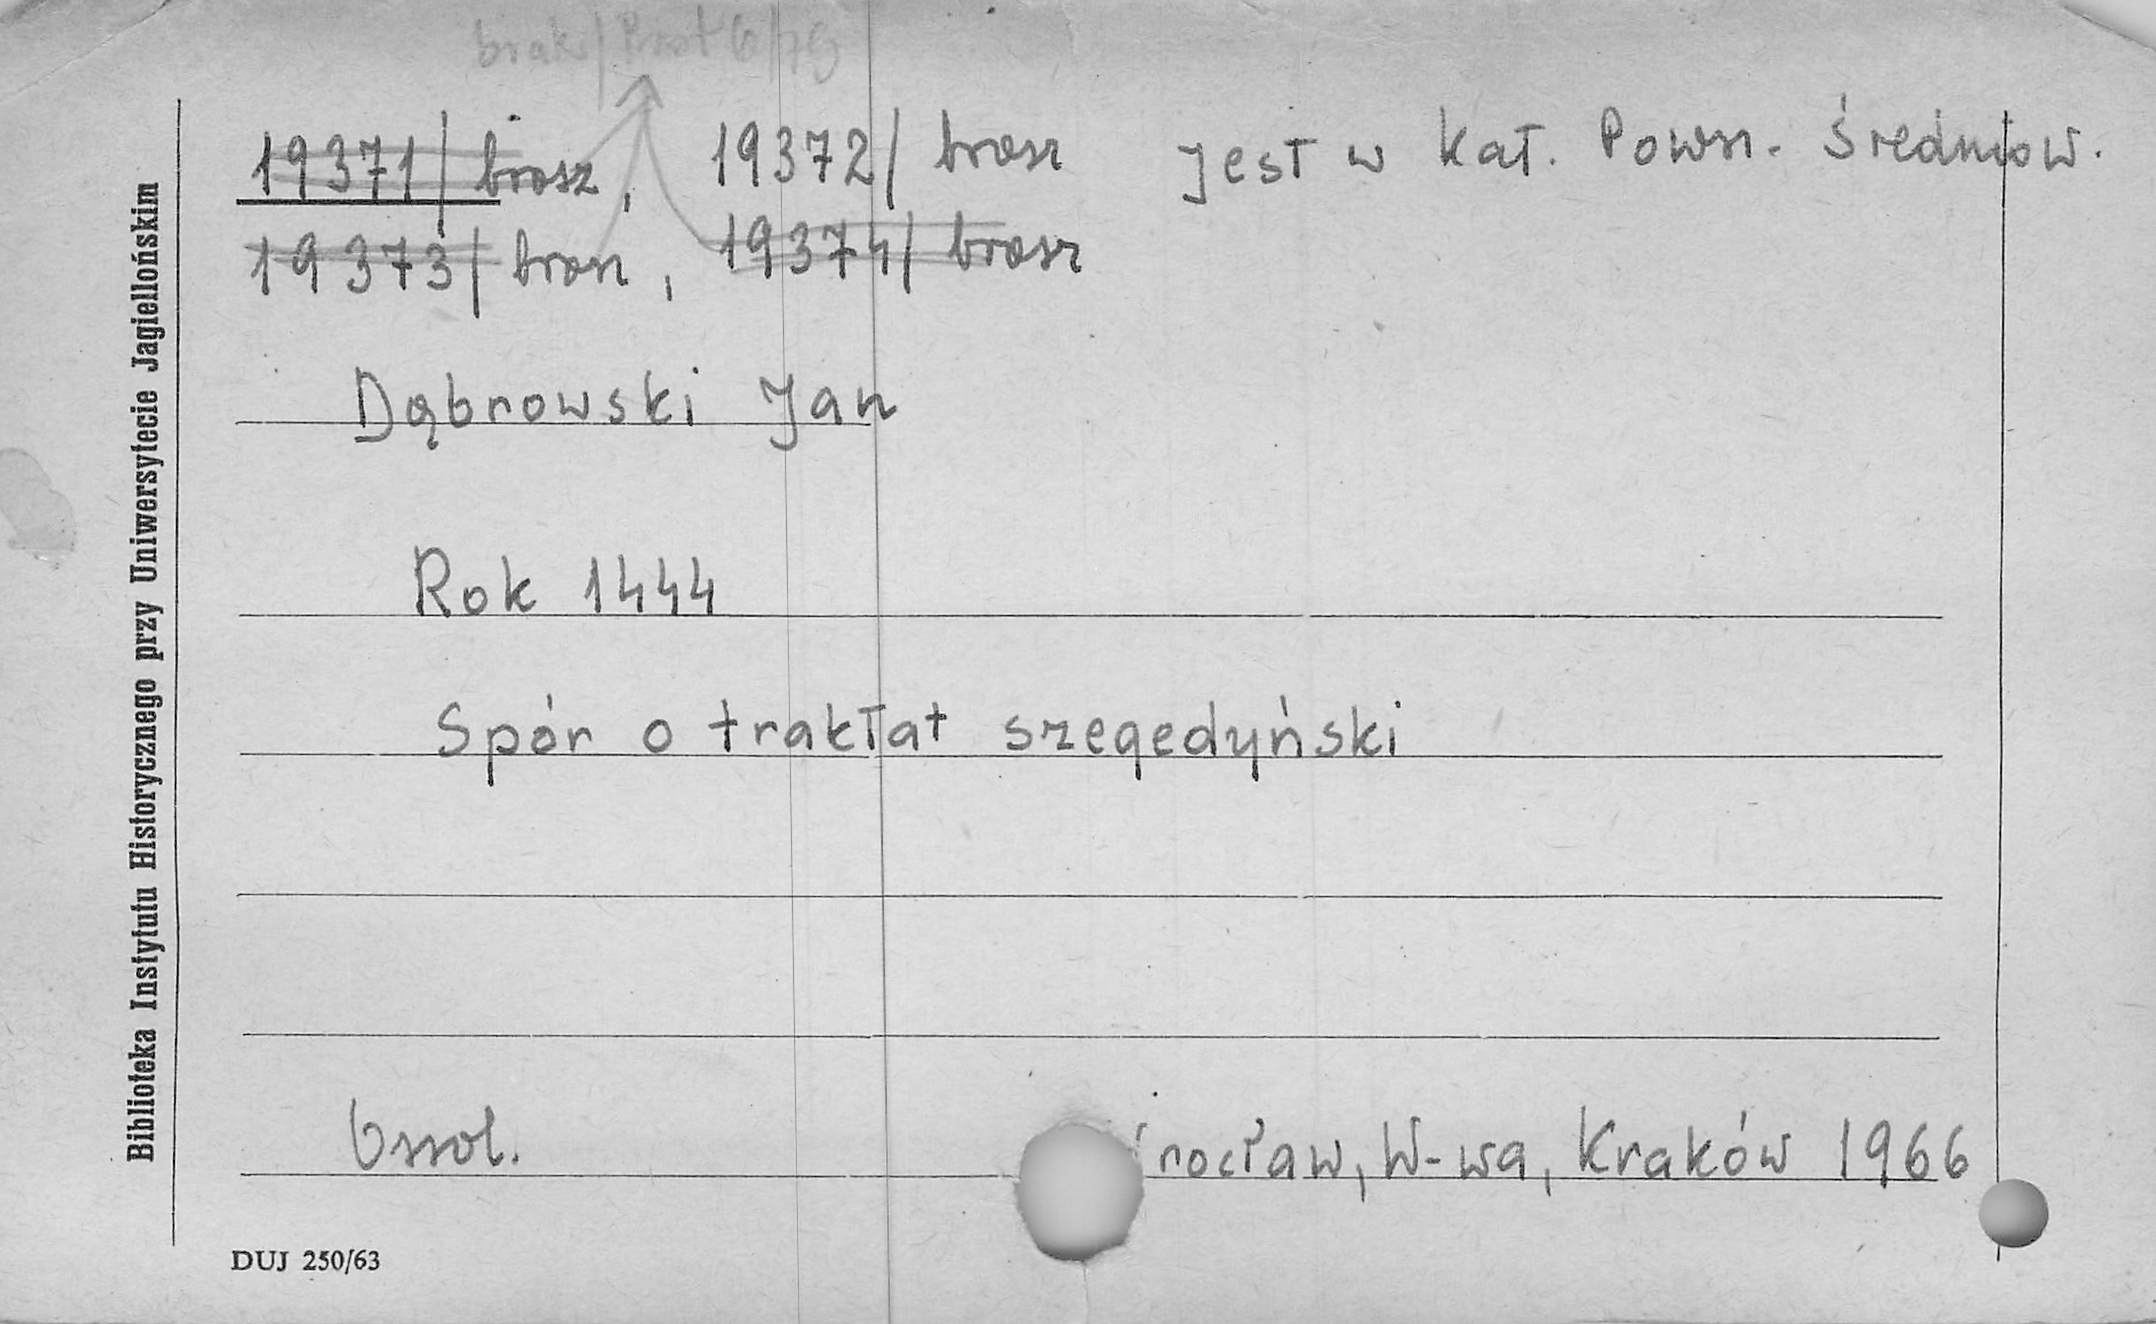 brak/Prot 6/79
19371/brosz, 19372/brosz jest w kat. Powsz. Średniow.
19373/brosz, 19374/brosz
Dąbrowski Jan
Rok 1444
Spór o traktat szegedyński
Ossol. rocław, W-wa, Kraków 1966
DUJ 250/63
Biblioteka Instytutu Historycznego przy Uniwersytecie Jagiellońskim